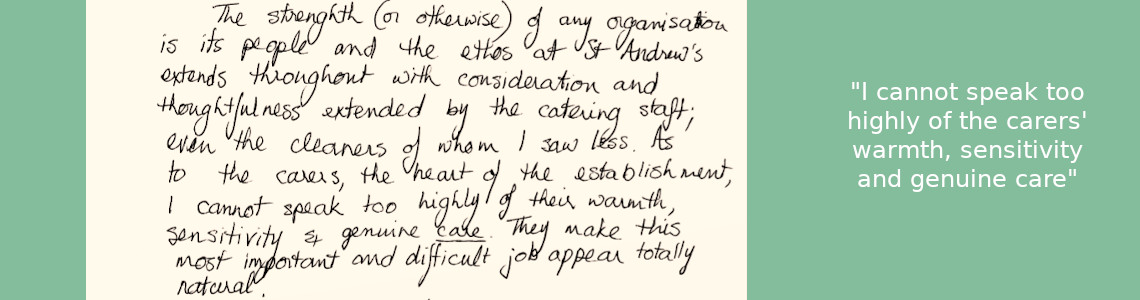 The strenghth (or otherwise) of any organisation
is its people and the ethos at St Andrew's
extends throughout with consideration and
thoughtfulness extended by the catering staff;
even the cleaners of whom I saw less. As
to the carers, the heart of the establishment,
I cannot speak too highly of their warmth,
sensitivity & genuine care. They make this
most important and difficult job appear totally
natural.
"I cannot speak too
highly of the carers'
warmth, sensitivity
and genuine care"